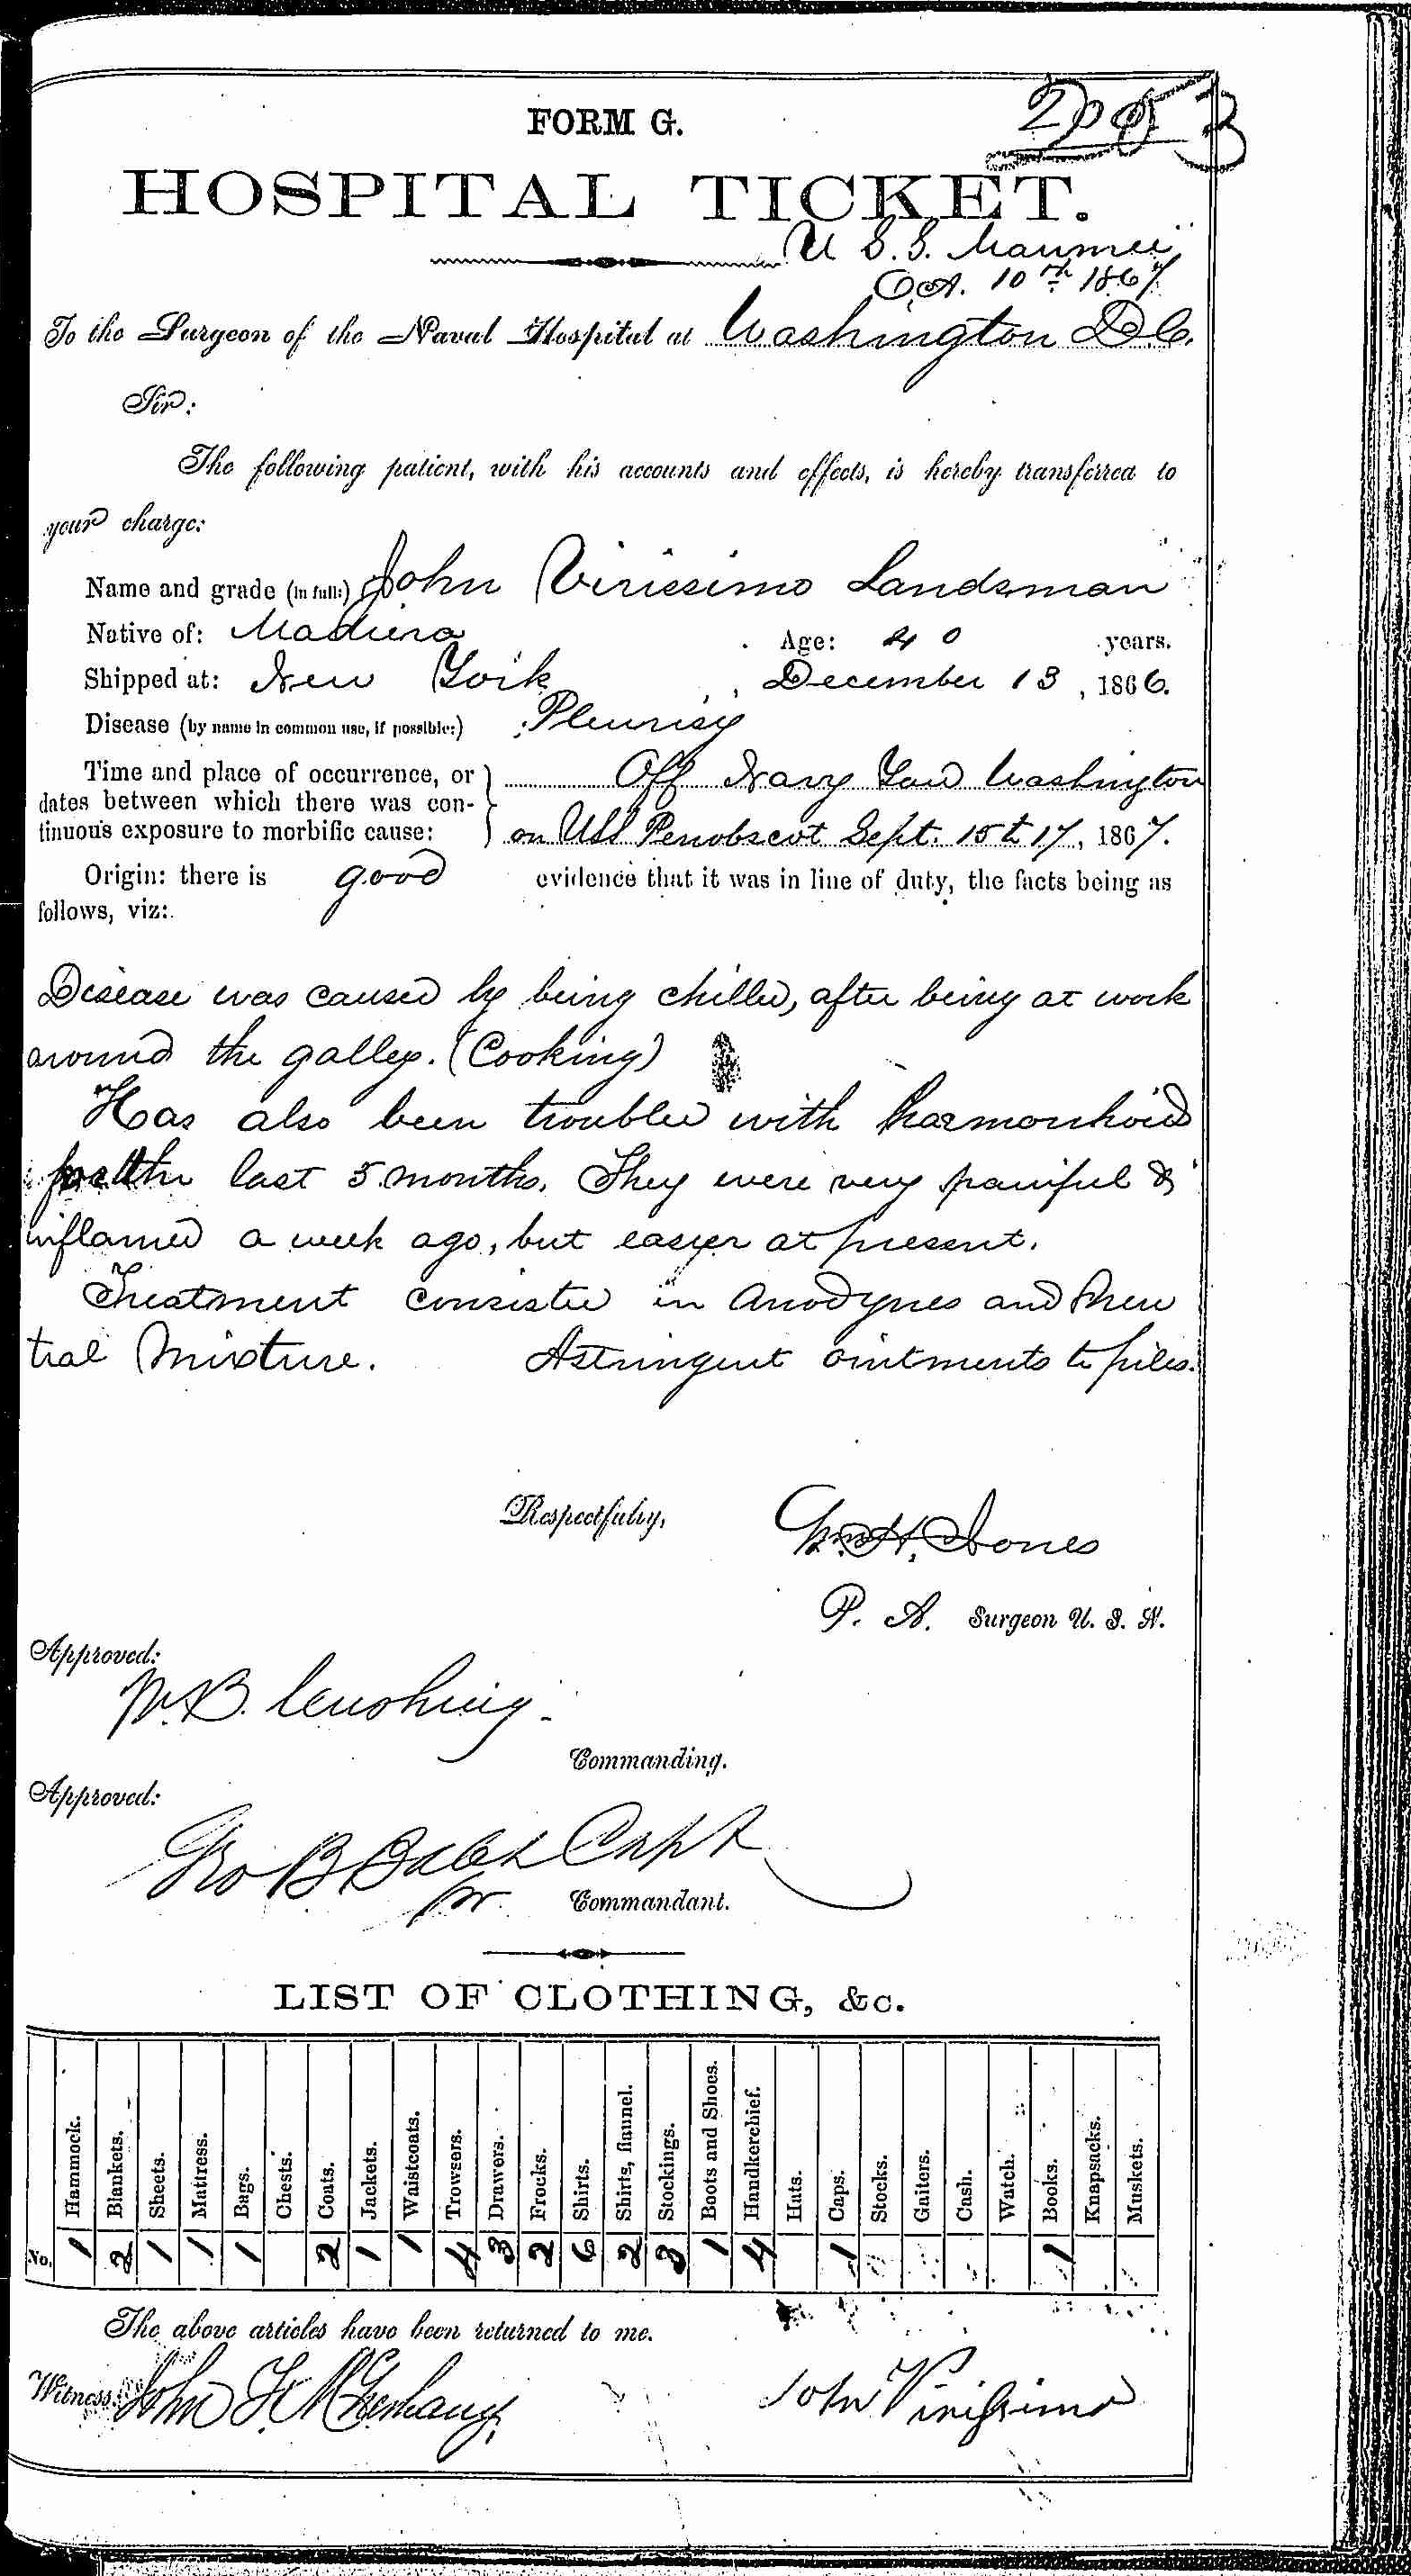 FORM G.
HOSPITAL TICKET.
U S. S. Maumee
Oct. 10th 1867
To the Surgeon of the Naval Hospital at Washington D.C.
Sir:
The following patient, with his accounts and effects, is hereby transferred to
your charge:
Name and grade (in full:) John Virissimo Landsman
Native of: Madiera Age: 40 years.
Shipped at: New York, December 13, 1866.
Disease (by name in common use, if possible:) Pleurisy
Time and place of occurrence, or Off Navy Yard Washington
dates between which there was con-
tinuous exposure to morbific cause: on USS Penobscot Sept. 15 to 17, 1867.
Origin: there is good evidence that it was in line of duty, the facts being as
follows, viz:
Disease was caused by being chilled, after being at work
around the galley. (Cooking)
Has also been troubled with
for the last 5 months. They were very painful &
inflamed a week ago, but easyer at present.
Treatment consisted in Anodynes and Neu
tral Mixture. Astringent ointments to piles.
Respectfully,
Wm H. Jones
P. A. Surgeon U. S. N.
Approved:
W. B. Cushing
Commanding.
Approved:
Geo B Capt
for Commandant.
LIST OF CLOTHING, &c.
Hammock. Blankets. Sheets. Mattress. Bags. Chests. Coats. Jackets. Waistcoats. Trowsers. Drawers. Frocks. Shirts. Shirts, flannel. Stockings. Boots and Shoes. Handkerchief. Hats. Caps. Stocks. Gaiters. Cash. Watch. Books. Knapsacks. Muskets.
No. 1 2 1 1 1 2 1 1 4 3 2 6 2 3 1 4 1 1
The above articles have been returned to me.
Witness: John F. John Virissimo